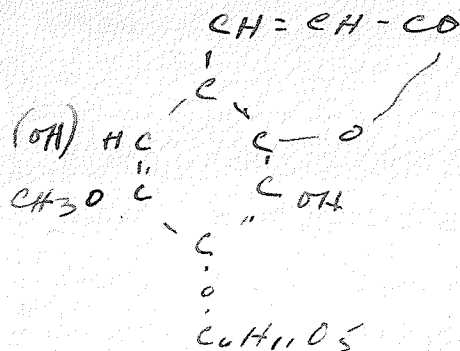 CH = CH - CO
C
(OH) HC C - O
CH3O C C OH
C
O
C6H11O5